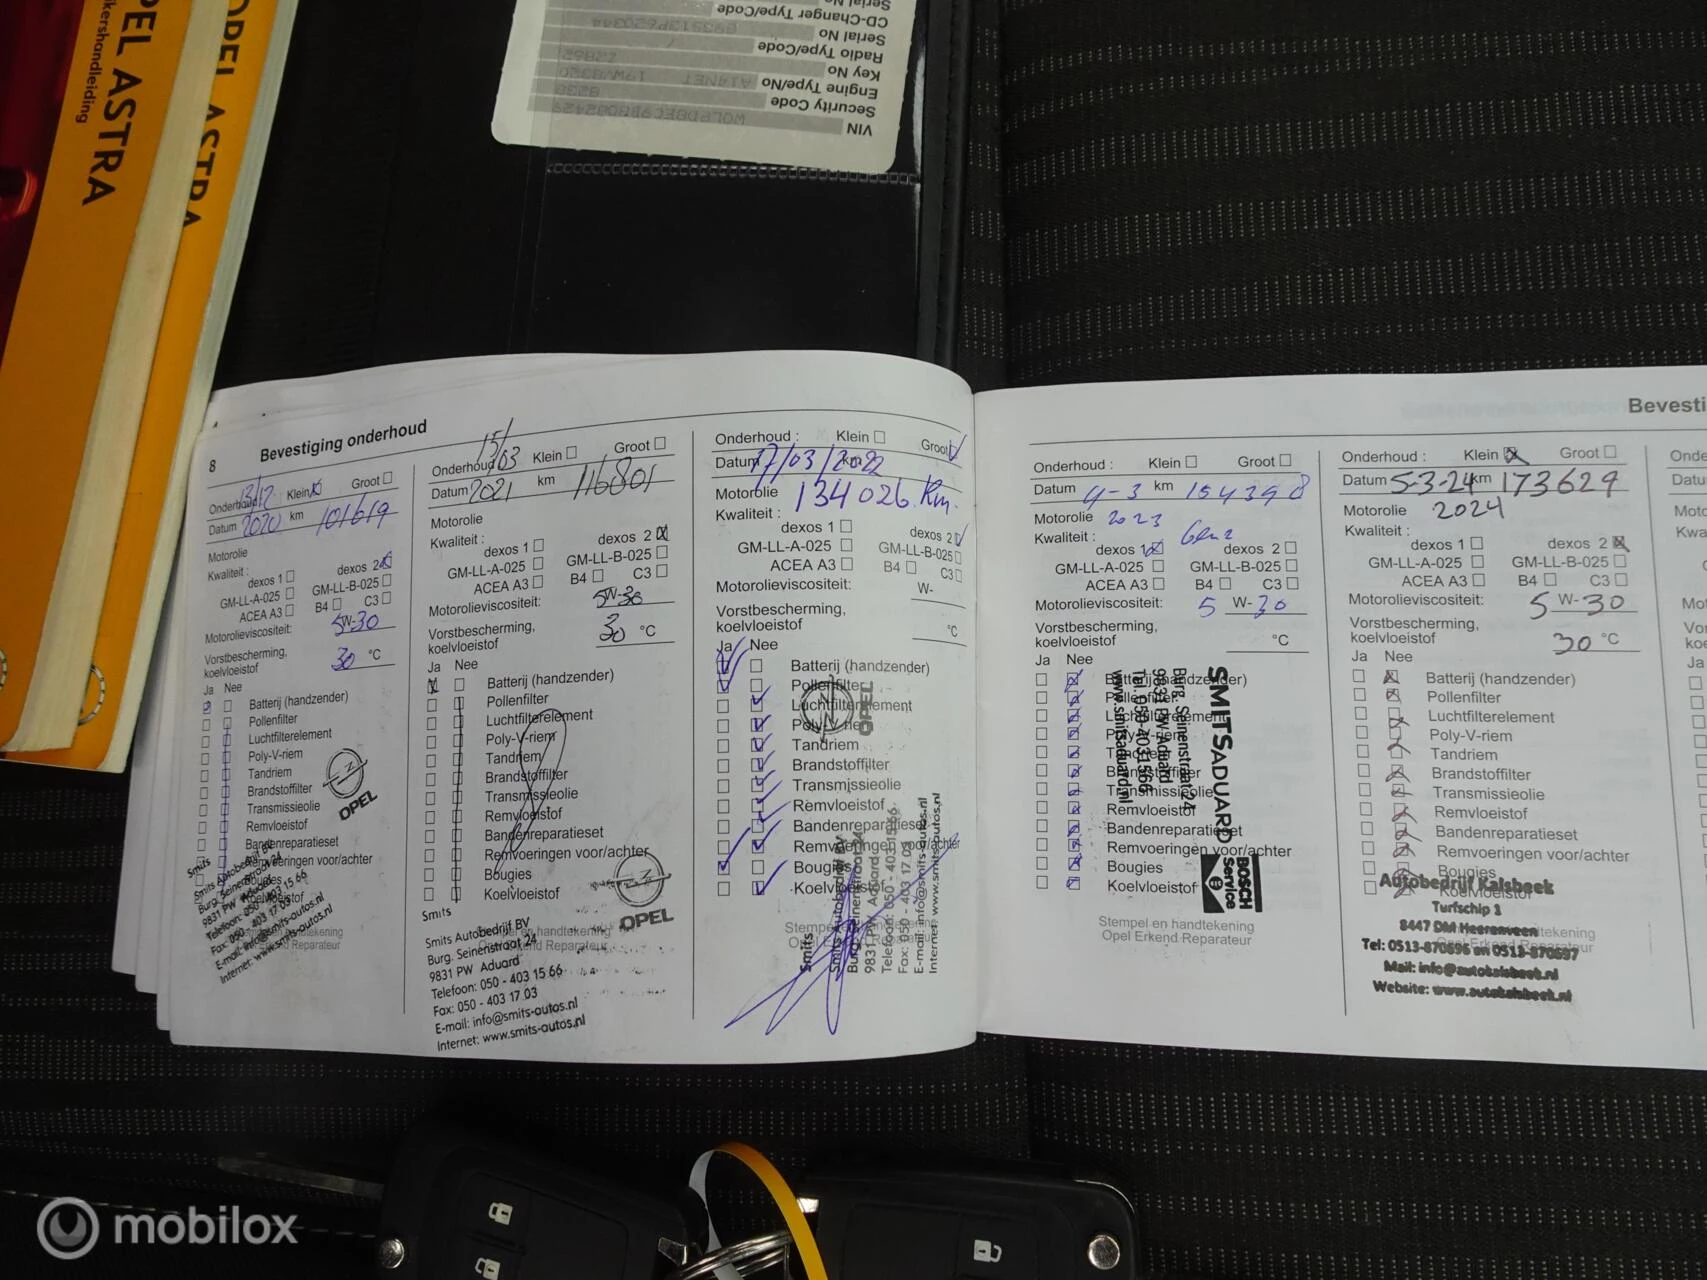 OPEL ASTRA
PEL ASTRA
ikershandleiding
CD-Changer Type/Code
Serial No
Radio Type/Code
Key No
Engine Type/No A14NET
Security Code
VIN
8
Bevestiging onderhoud
Onderhoud: Klein Groot
13/12
Datum 2020 km 101619
Motorolie
Kwaliteit:
dexos 1 dexos 2
GM-LL-A-025 GM-LL-B-025
ACEA A3 B4 C3
Motorolieviscositeit: 5W-30
Vorstbescherming,
koelvloeistof 30 °C
Ja Nee
Batterij (handzender)
Pollenfilter
Luchtfilterelement
Poly-V-riem
Tandriem
Brandstoffilter
Transmissieolie
Remvloeistof
Bandenreparatieset
Remvoeringen voor/achter
Bougies
Koelvloeistof
OPEL
Smits
Smits Autobedrijf BV
Burg. Seinenstraat 24
9831 PW Aduard
Telefoon: 050 - 403 15 66
Fax: 050 - 403 17 03
E-mail: info@smits-autos.nl
Internet: www.smits-autos.nl
15/03
Onderhoud Klein Groot
Datum 2021 km 116801
Motorolie
Kwaliteit:
dexos 1 dexos 2
GM-LL-A-025 GM-LL-B-025
ACEA A3 B4 C3
Motorolieviscositeit: 5W-30
Vorstbescherming,
koelvloeistof 30 °C
Ja Nee
Batterij (handzender)
Pollenfilter
Luchtfilterelement
Poly-V-riem
Tandriem
Brandstoffilter
Transmissieolie
Remvloeistof
Bandenreparatieset
Remvoeringen voor/achter
Bougies
Koelvloeistof
OPEL
Smits
Smits Autobedrijf BV
Burg. Seinenstraat 24
9831 PW Aduard
Telefoon: 050 - 403 15 66
Fax: 050 - 403 17 03
E-mail: info@smits-autos.nl
Internet: www.smits-autos.nl
Onderhoud : Klein Groot
Datum 17/03/2022 km
Motorolie 134026 km.
Kwaliteit :
dexos 1 dexos 2
GM-LL-A-025 GM-LL-B-025
ACEA A3 B4 C3
Motorolieviscositeit: W-
Vorstbescherming,
koelvloeistof °C
Ja Nee
Batterij (handzender)
Pollenfilter
Luchtfilterelement
Poly-V-riem
Tandriem
Brandstoffilter
Transmissieolie
Remvloeistof
Bandenreparatieset
Remvoeringen voor/achter
Bougies
Koelvloeistof
OPEL
Smits
Smits Autobedrijf BV
Burg. Seinenstraat 24
9831 PW Aduard
Telefoon: 050 - 403 15 66
Fax: 050 - 403 17 03
E-mail: info@smits-autos.nl
Internet: www.smits-autos.nl
Bevesti
Onderhoud : Klein Groot
Datum 4-3 km 154398
Motorolie 2023
Kwaliteit : Gen2
dexos 1 dexos 2
GM-LL-A-025 GM-LL-B-025
ACEA A3 B4 C3
Motorolieviscositeit: 5 W-30
Vorstbescherming,
koelvloeistof °C
Ja Nee
Batterij (handzender)
Pollenfilter
Luchtfilterelement
Poly-V-riem
Tandriem
Brandstoffilter
Transmissieolie
Remvloeistof
Bandenreparatieset
Remvoeringen voor/achter
Bougies
Koelvloeistof
SMITSADUARD
Burg. Seinenstraat 24
9831 PW Aduard
Tel. 050-4031566
www.smitsaduard.nl
BOSCH
Service
Stempel en handtekening
Opel Erkend Reparateur
Onderhoud : Klein Groot
Datum 5-3-24 km 173629
Motorolie 2024
Kwaliteit :
dexos 1 dexos 2
GM-LL-A-025 GM-LL-B-025
ACEA A3 B4 C3
Motorolieviscositeit: 5 W-30
Vorstbescherming,
koelvloeistof 30 °C
Ja Nee
Batterij (handzender)
Pollenfilter
Luchtfilterelement
Poly-V-riem
Tandriem
Brandstoffilter
Transmissieolie
Remvloeistof
Bandenreparatieset
Remvoeringen voor/achter
Bougies
Koelvloeistof
Autobedrijf Kalsbeek
Turfschip 1
8447 DM Heerenveen
Tel: 0513-870696 en 0513-870697
Mail: info@autokalsbeek.nl
Website: www.autokalsbeek.nl
mobilox